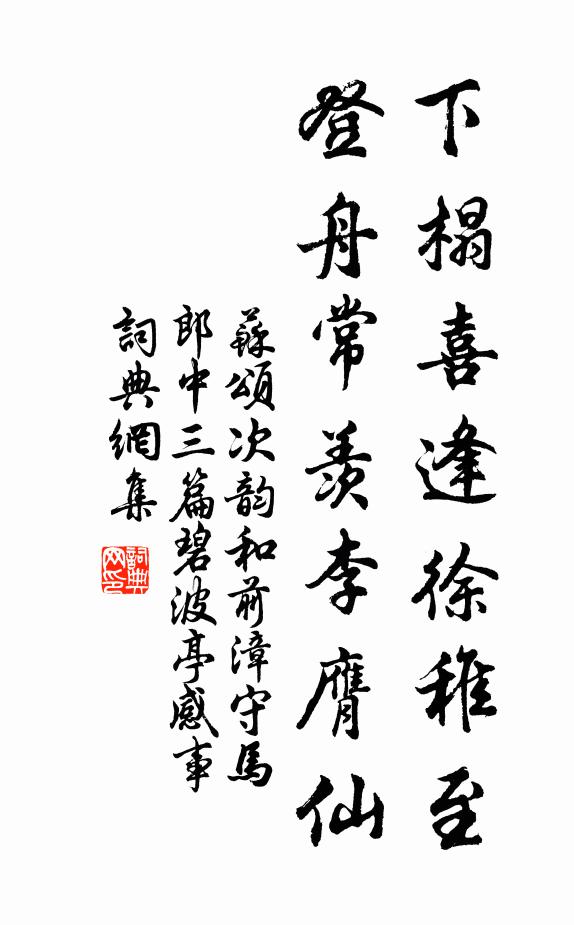 下榻喜逢徐稚至
登舟常羡李膺仙
蘇頌次韵和前漳守馬
郎中三篇碧波亭感事
詞典網集
詞典网印